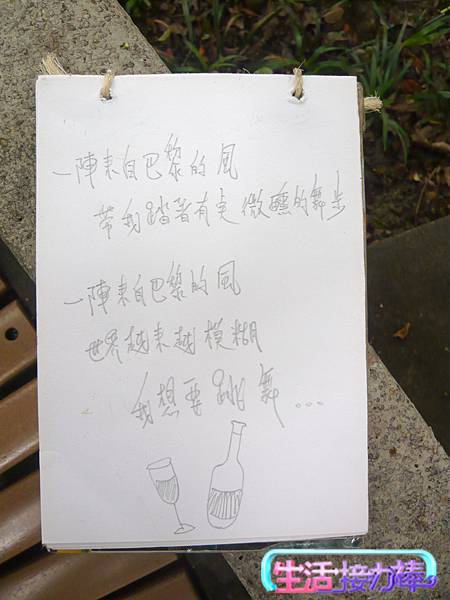 一陣來自巴黎的風
帶我踏著有點微醺的舞步
一陣來自巴黎的風
世界越來越模糊
我想要跳舞...
生活接力棒